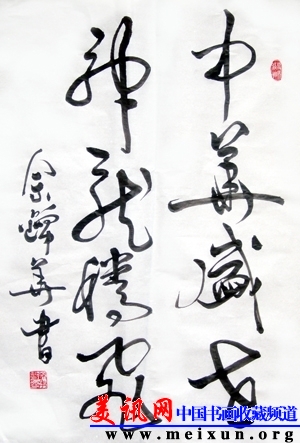 中华盛世
神龙腾飞
余峰华书
美讯网 中国书画收藏频道
www.meixun.org